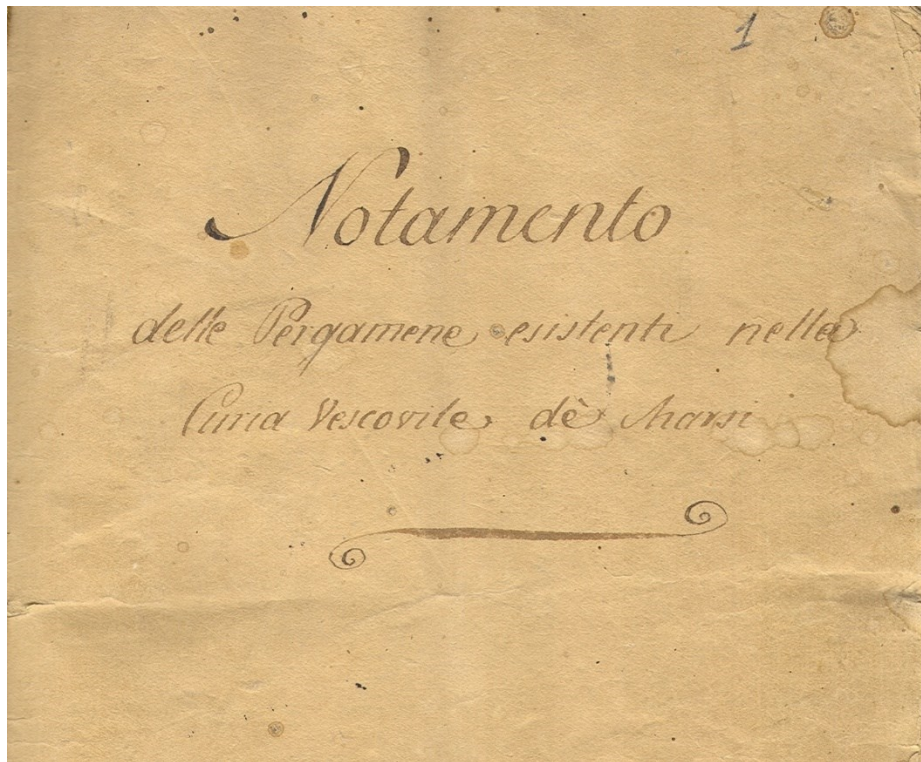 1
Notamento
delle Pergamene esistenti nella
Curia Vescovile dè Marsi